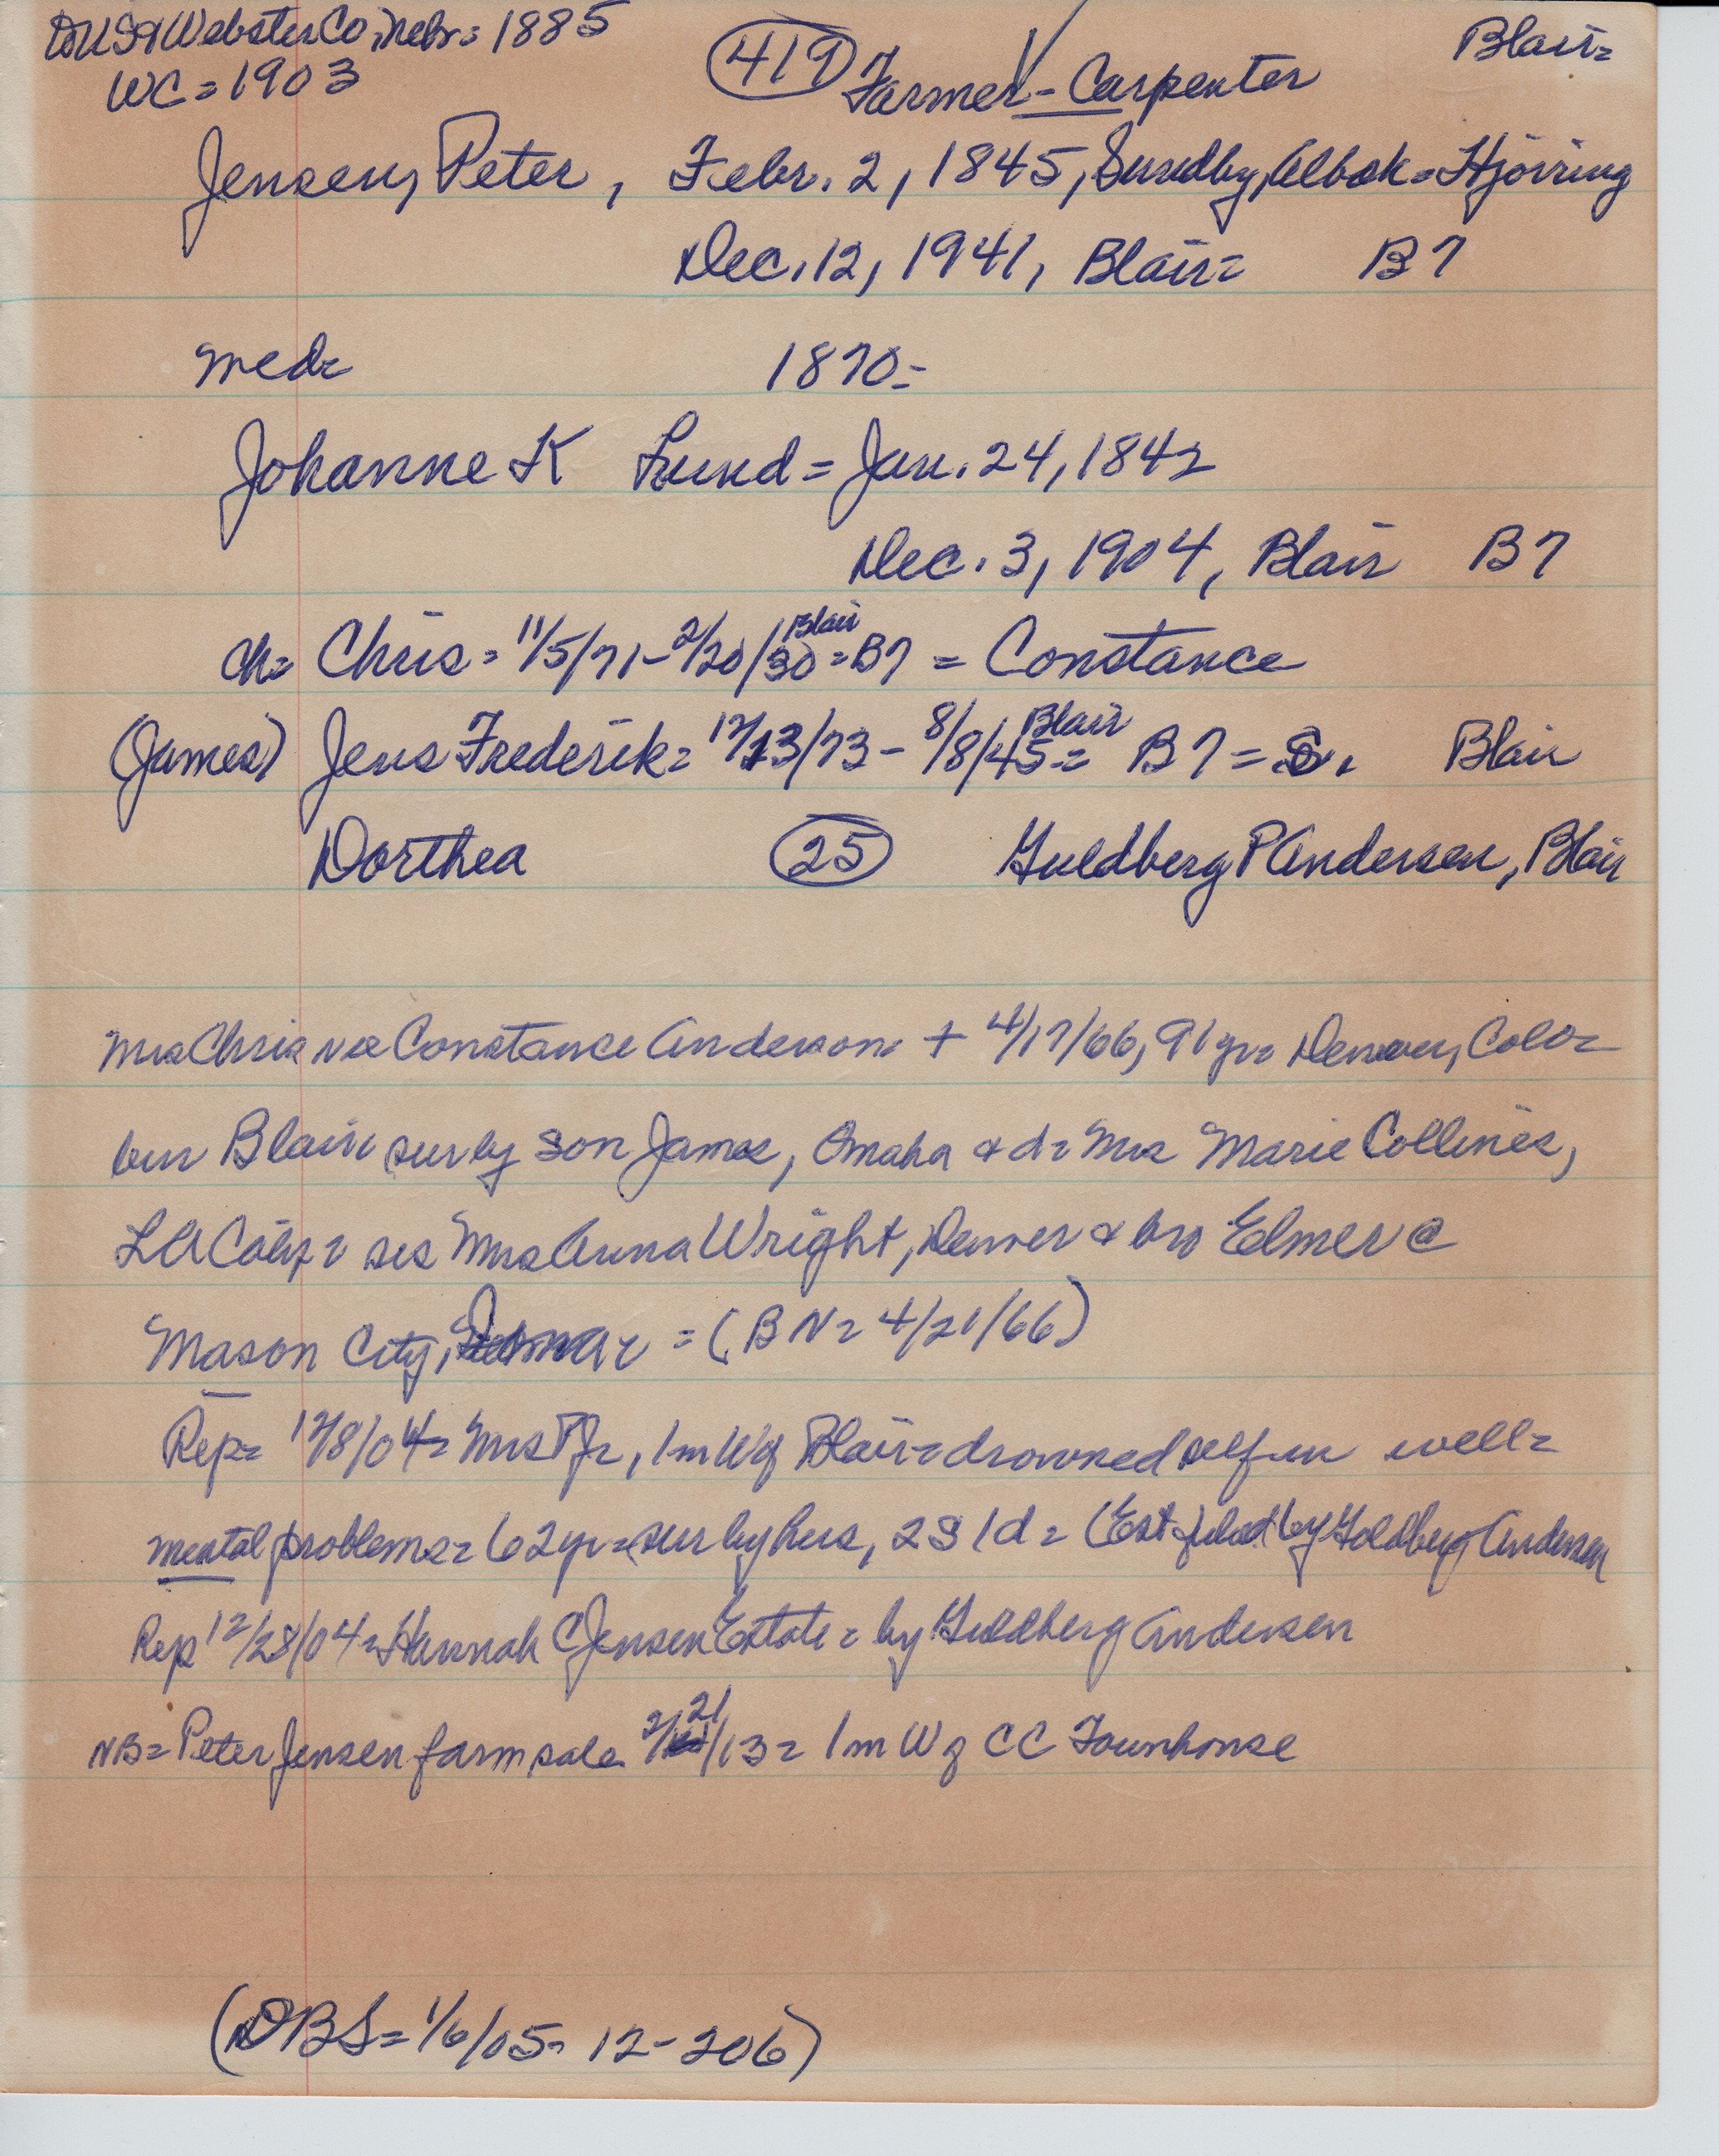 USA Webster Co, Nebr = 1885
WC = 1903
419
Farmer - Carpenter
Blair =
Jensen, Peter, Febr. 2, 1845, Sundby, Albak = Hjörring
Dec. 12, 1941, Blair = B7
med = 1870 =
Johanne K Lund = Jan. 24, 1842
Dec. 3, 1904, Blair B7
ch = Chris = 11/5/71 - 2/20/30 = Blair B7 = Constance
(James) Jens Frederik = 12/13/73 - 8/8/45 = Blair B7 = S. Blair
Dorthea 25 Guldberg P Andersen, Blair
Mrs Chris nee Constance Anderson + 4/17/66, 91 yr = Denver, Colo =
bur Blair sur by son James, Omaha & d = Mrs Marie Collines,
LA Calif = sis Mrs Anna Wright, Denver & bro Elmer @
Mason City, = (BN = 4/21/66)
Rep = 12/8/04 = Mrs PJ =, 1 m W of Blair = drowned self in well =
mental problems = 62 yr = sur by hus, 2S 1d = (Est filed by Goldberg Andersen
Rep 12/28/04 = Hannah C Jensen Estate = by Guldberg Andersen
NB = Peter Jensen farm sale 2/21/13 = 1 m W of CC Townhouse
(DBS = 1/6/05 = 12-206)